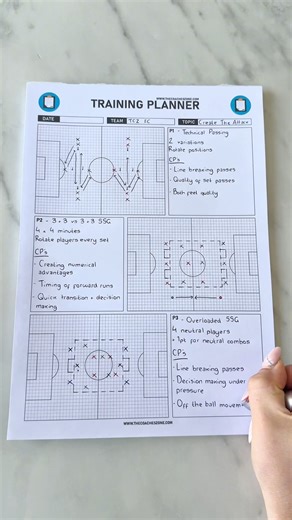 WWW.THECOACHESZONE.COM
TRAINING PLANNER
DATE
TEAM TCZ FC
TOPIC Create The Attack
P1 - Technical Passing
2 variations
Rotate positions
CP's
- Line breaking passes
- Quality of set passes
- Both feet quality
P2 - 3+3 vs 3+3 SSG
4 x 4 minutes
Rotate players every set
CP's
- Creating numerical
advantages
- Timing of forward runs
- Quick transition + decision
making
P3 - Overloaded SSG
4 neutral players
+ 1pt for neutral combos
CP's
- Line breaking passes
- Decision making under
pressure
- Off the ball movem
WWW.THECOACHESZONE.COM